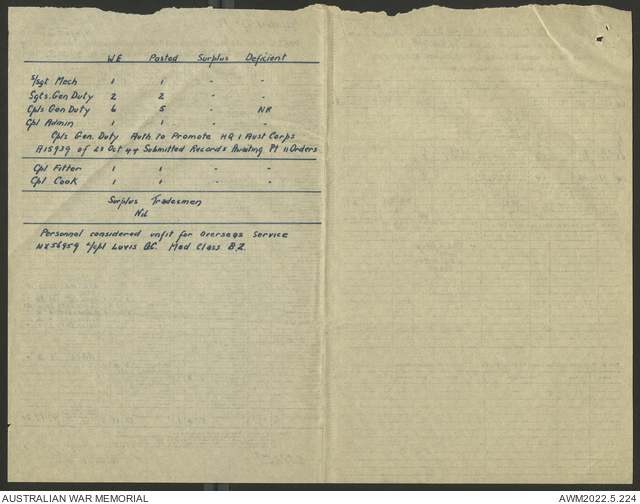 WE Posted Surplus Deficient
S/Sgt Mech 1 1 - -
Sgts. Gen Duty 2 2 - -
Cpls Gen Duty 6 5 - NR
Cpl Admin 1 1 - -
Cpls Gen. Duty Auth to Promote HQ 1 Aust Corps
A15939 of 23 Oct 44 Submitted Records Awaiting Pt 11 Orders
Cpl Fitter 1 1 - -
Cpl Cook 1 1 - -
Surplus Tradesmen
Nil
Personnel considered unfit for Overseas Service
NX56959 L/Cpl Luvis Med Class B.2.
AUSTRALIAN WAR MEMORIAL
AWM2022.5.224